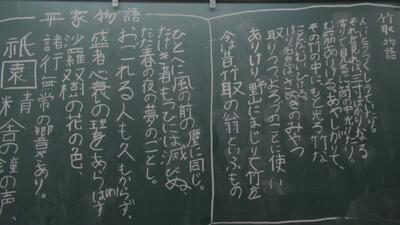 竹取物語
今は昔竹取の翁といふもの
ありけり。野山にまじりて竹を
取りつつよろづのことに使い
けり。名をばさぬきのみやつ
ことなむいひける。
その竹の中にもと光る竹な
む一筋ありける。あやしがりて、
寄りて見るに筒の中光りたり。
それを見れば三寸ばかりなる
人いとうつくしうてゐたり。
平家物語
祇園精舎の鐘の声、
諸行無常の響きあり。
沙羅双樹の花の色、
盛者必衰の理をあらはす
おごれる人も久しからず、
ただ春の夜の夢のことし。
たけき者もつひには滅びぬ、
ひとへに風の前の塵に同じ。